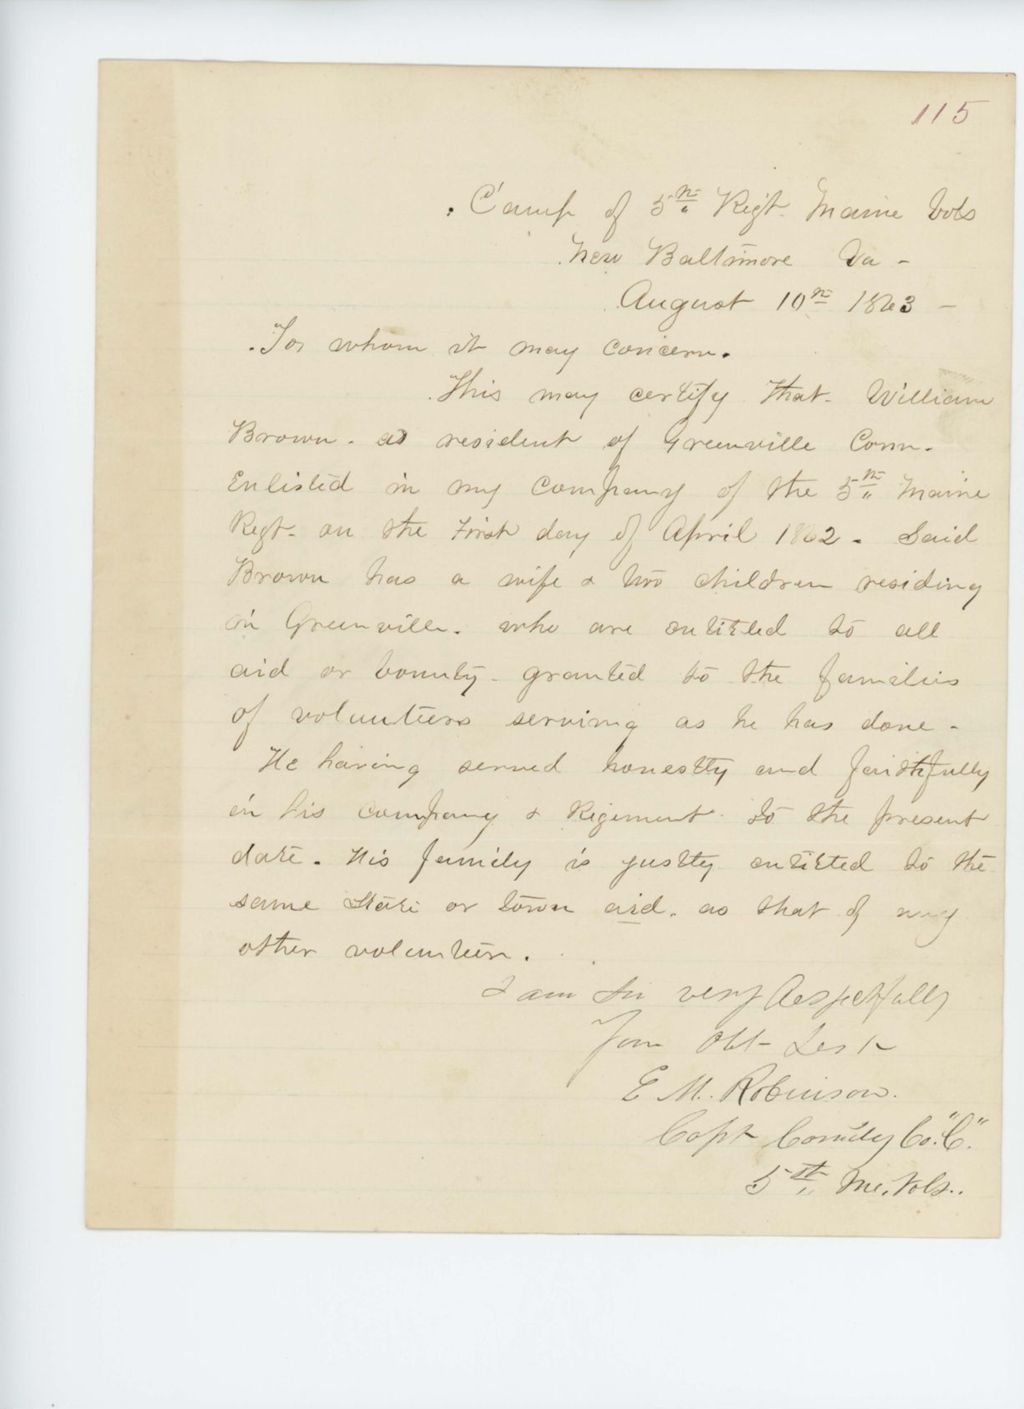 115
Camp of 5th Regt. Maine Vols
New Baltimore Va -
August 10th 1863 -
To whom it may concern.
This may certify that William
Brown. a resident of Greenville Conn.
Enlisted in my company of the 5th Maine
Regt. on the First day of April 1862. Said
Brown has a wife & two children residing
in Greenville. who are entitled to all
aid or bounty - granted to the families
of volunteers serving as he has done -
He having served honestly and faithfully
in his company & Regiment to the present
date. His family is justly entitled to the
same State or town aid. as that of any
other volunteer.
I am Sir very Respectfully
Your Obt Servt
E M. Robinson.
Capt Comdg Co. "C."
5th Me. Vols..